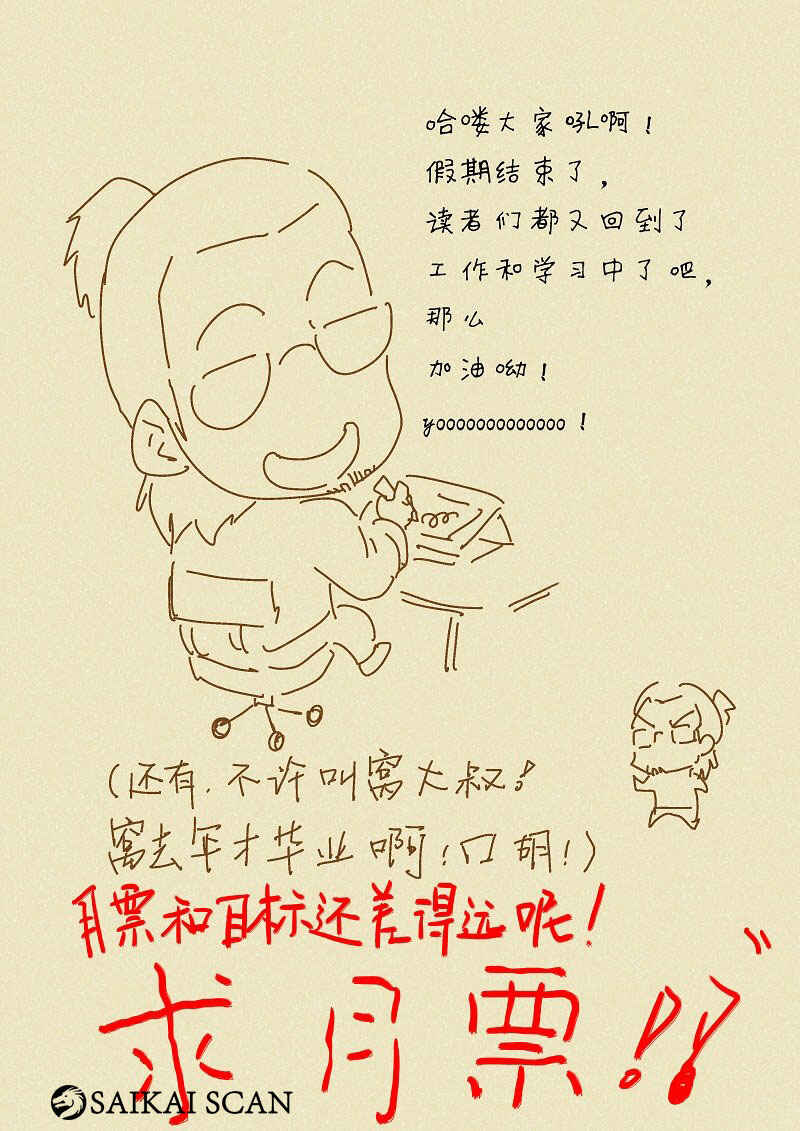 哈喽大家吼啊!
假期结束了,
读者们都又回到了
工作和学习中了吧,
那么
加油呦!
yooooooooooooo!
(还有,不许叫窝大叔!
窝去年才毕业啊!口胡!)
月票和目标还差得远呢!
求月票!!
SAIKAI SCAN